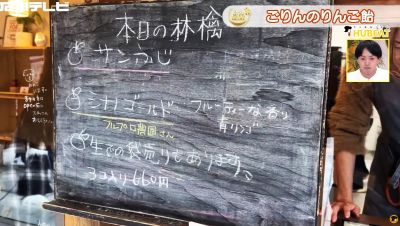 テレビ
ごりんのりんご飴
HUBBAT
本日の林檎
サンふじ
〃
シナノゴールド フルーティーな香り
青リンゴ
フルプロ農園さん
生での袋売りもあります。
3コ入り660円